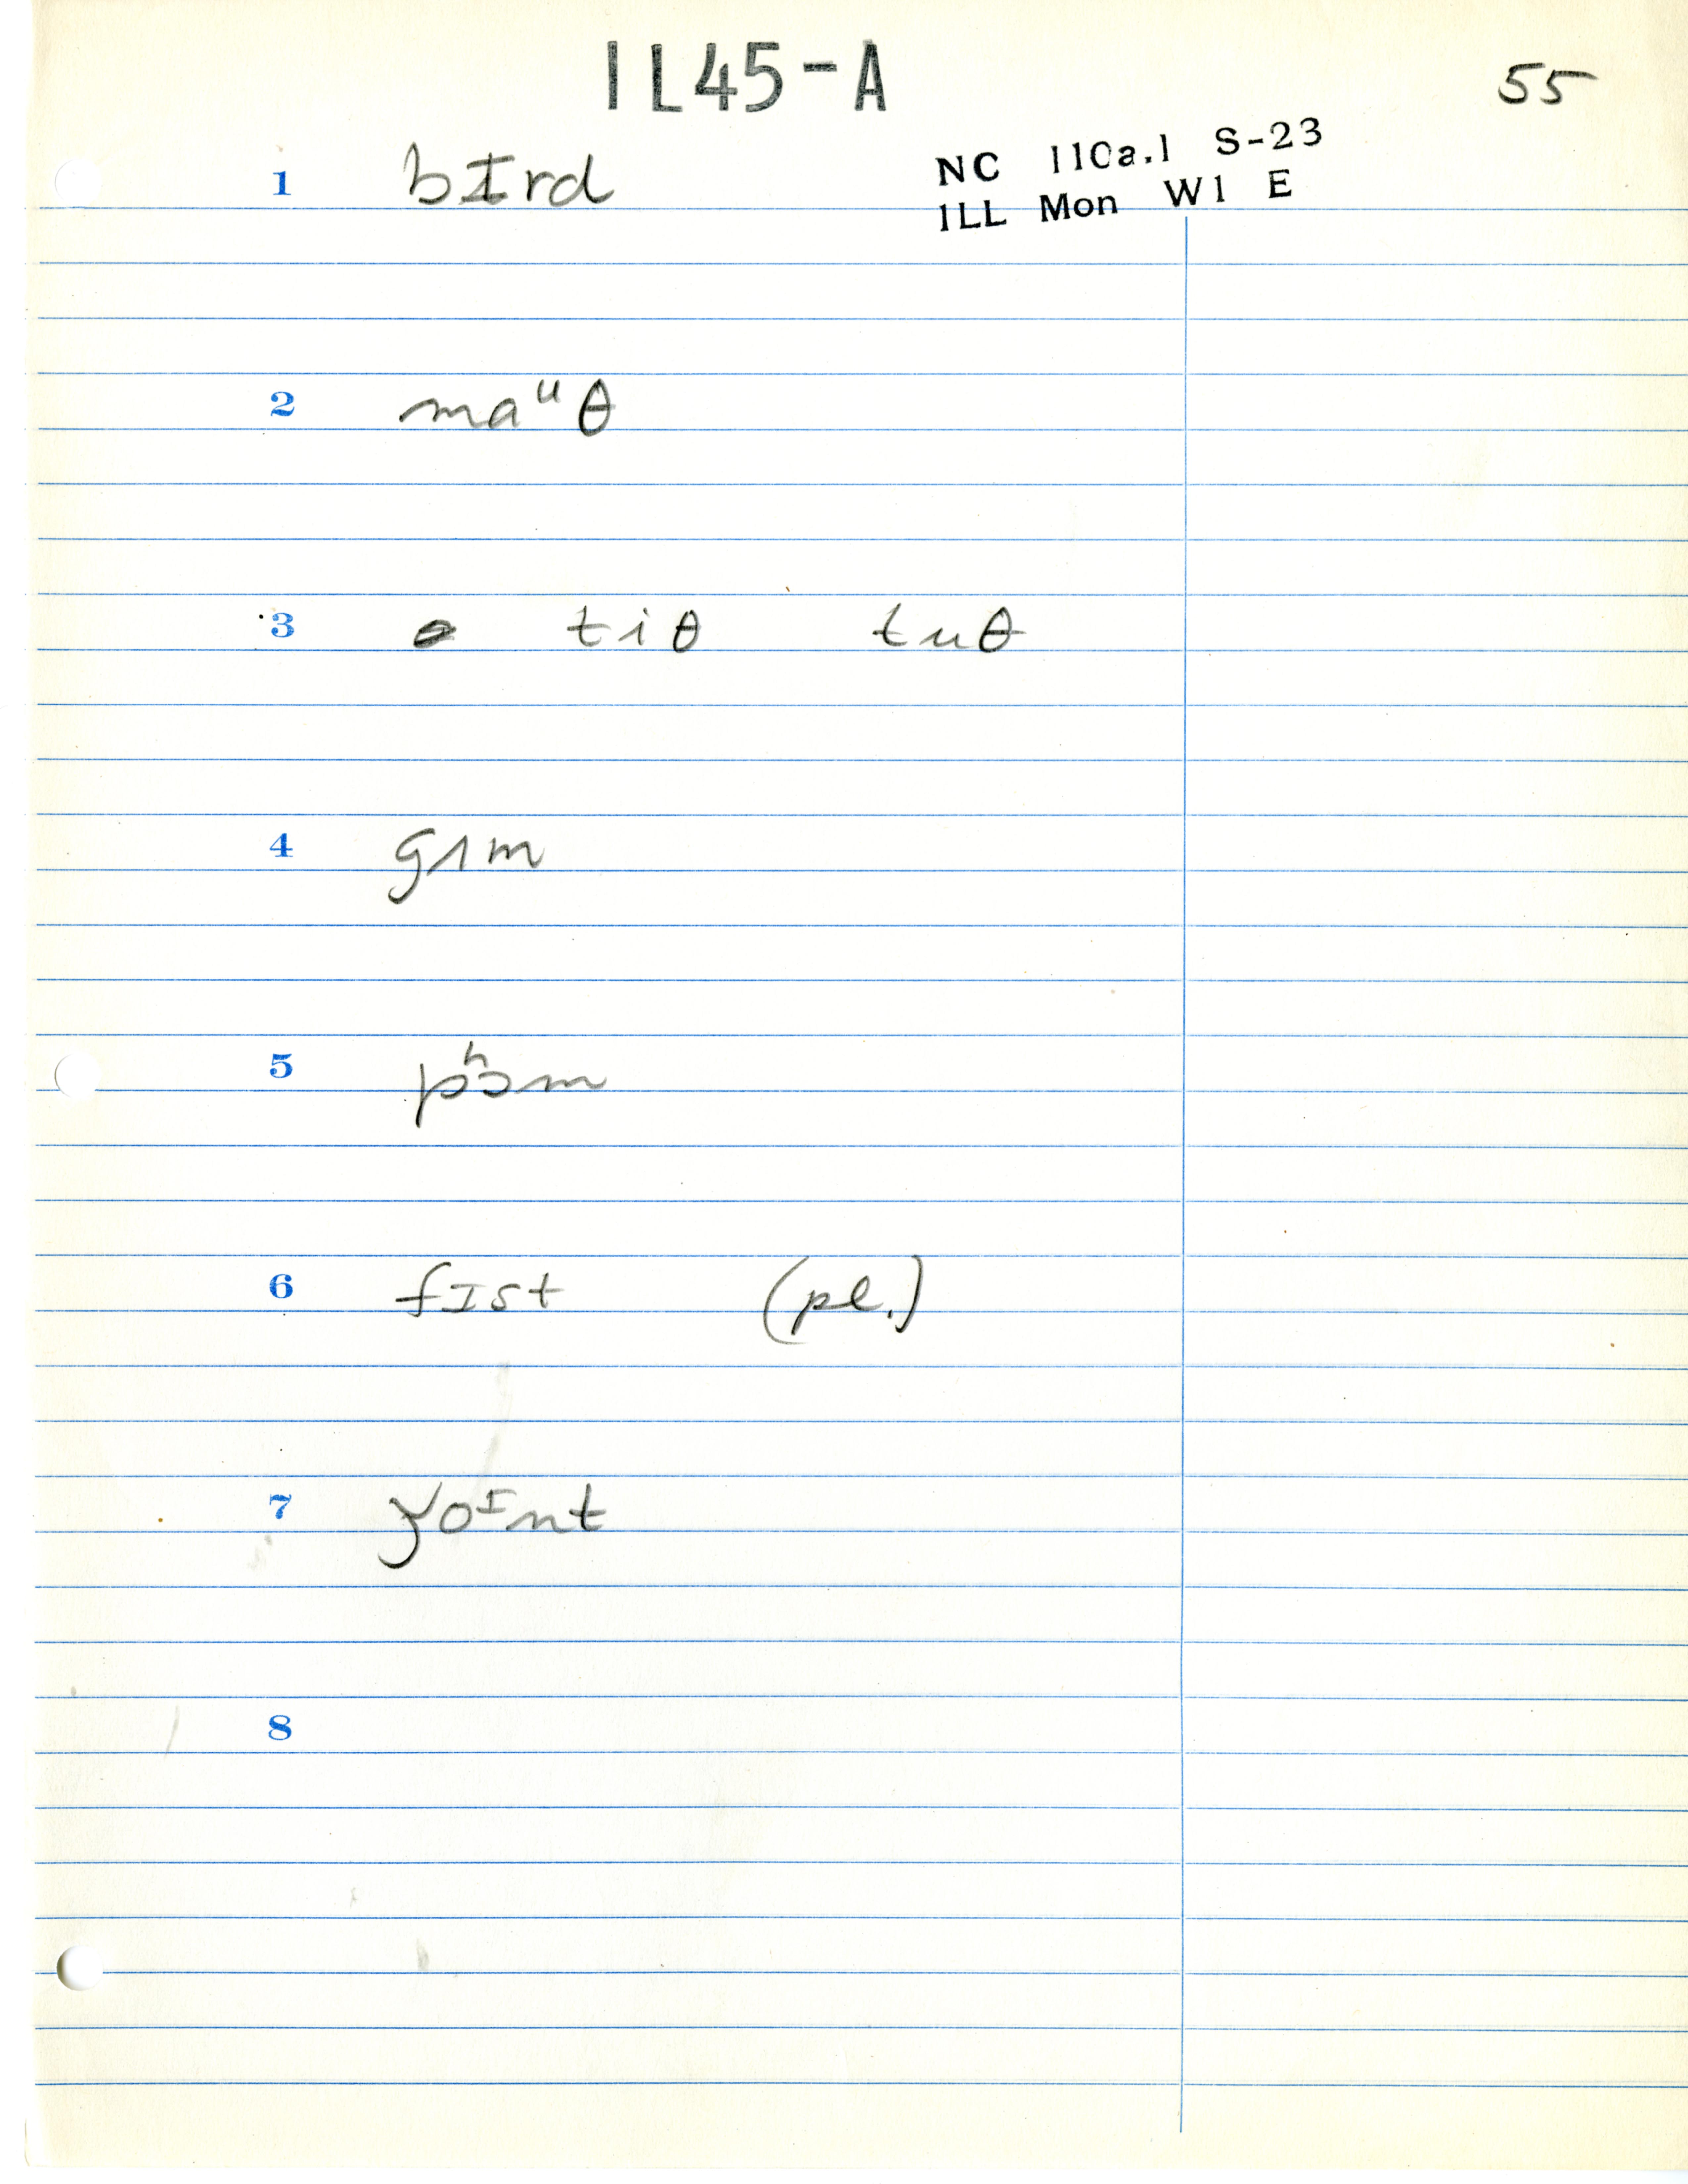 IL45-A
55
NC 110a.1 S-23
ILL Mon W1 E
1 bIrd
2 maᵘθ
3 tiθ tuθ
4 gʌm
5 pʰɔm
6 fIst (pl.)
7 ǰoᴵnt
8